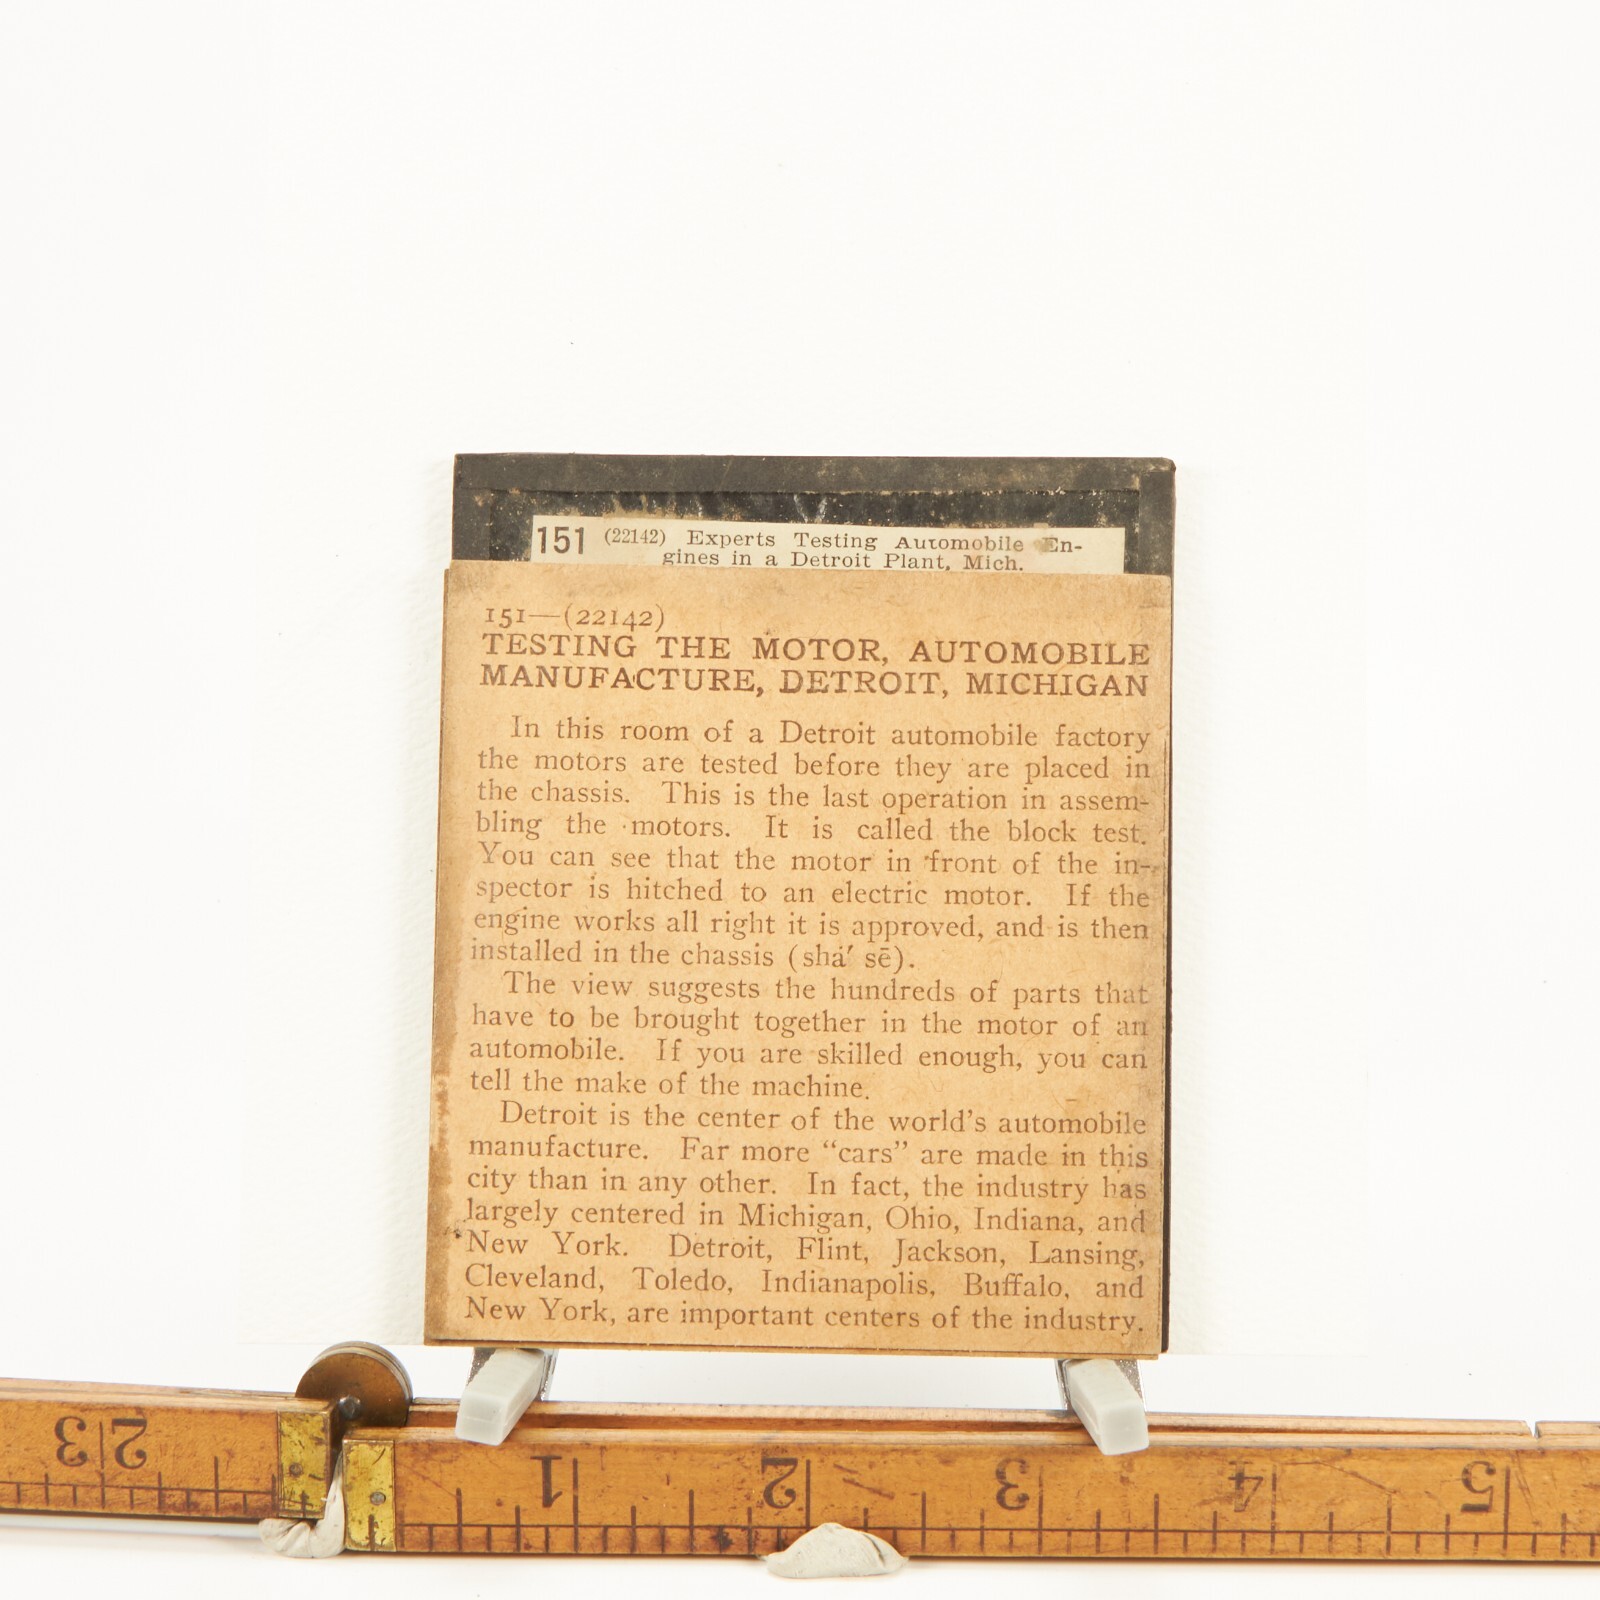 151 (22142) Experts Testing Automobile En-
gines in a Detroit Plant, Mich.
151—(22142)
TESTING THE MOTOR, AUTOMOBILE
MANUFACTURE, DETROIT, MICHIGAN
In this room of a Detroit automobile factory
the motors are tested before they are placed in
the chassis. This is the last operation in assem-
bling the motors. It is called the block test.
You can see that the motor in front of the in-
spector is hitched to an electric motor. If the
engine works all right it is approved, and is then
installed in the chassis (shȧ′ sē).
The view suggests the hundreds of parts that
have to be brought together in the motor of an
automobile. If you are skilled enough, you can
tell the make of the machine.
Detroit is the center of the world's automobile
manufacture. Far more “cars” are made in this
city than in any other. In fact, the industry has
largely centered in Michigan, Ohio, Indiana, and
New York. Detroit, Flint, Jackson, Lansing,
Cleveland, Toledo, Indianapolis, Buffalo, and
New York, are important centers of the industry.
23 1 2 3 4 5